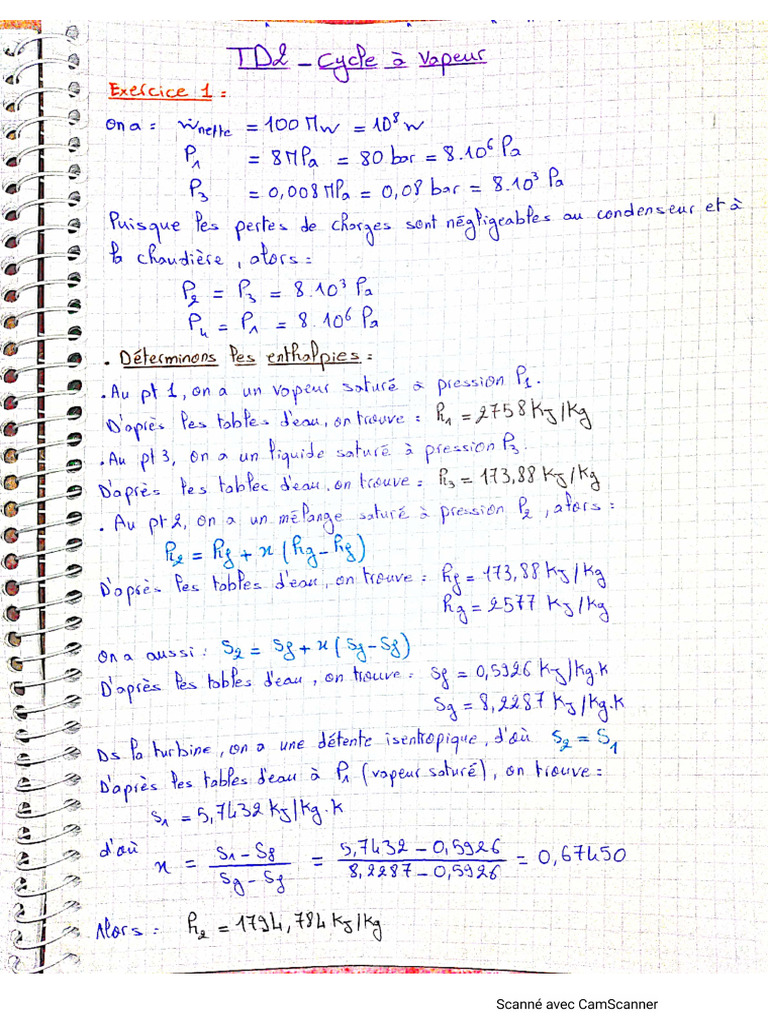 TD2 - Cycle à Vapeur
Exercice 1 :
on a : ẇnette = 100 Mw = 10⁸ w
P₁ = 8 MPa = 80 bar = 8.10⁶ Pa
P₃ = 0,008 MPa = 0,08 bar = 8.10³ Pa
Puisque les pertes de charges sont négligeables au condenseur et à
la chaudière, alors :
P₂ = P₃ = 8.10³ Pa
P₄ = P₁ = 8.10⁶ Pa
. Déterminons les enthalpies :
. Au pt 1, on a un vapeur saturé à pression P₁.
D'après les tables d'eau, on trouve : h₁ = 2758 KJ/Kg
. Au pt 3, on a un liquide saturé à pression P₃.
D'après les tables d'eau, on trouve : h₃ = 173,88 KJ/Kg
. Au pt 2, on a un mélange saturé à pression P₂, alors :
h₂ = hf + x (hg - hf)
D'après les tables d'eau, on trouve : hf = 173,88 KJ/Kg
hg = 2577 KJ/Kg
On a aussi : S₂ = Sf + x (Sg - Sf)
D'après les tables d'eau, on trouve : Sf = 0,5926 KJ/Kg.K
Sg = 8,2287 KJ/Kg.K
Ds la turbine, on a une détente isentropique, d'où S₂ = S₁
D'après les tables d'eau à P₁ (vapeur saturé), on trouve :
S₁ = 5,7432 KJ/Kg.K
d'où x = (S₁ - Sf) / (Sg - Sf) = (5,7432 - 0,5926) / (8,2287 - 0,5926) = 0,67450
Alors : h₂ = 1794,784 KJ/Kg
Scanné avec CamScanner